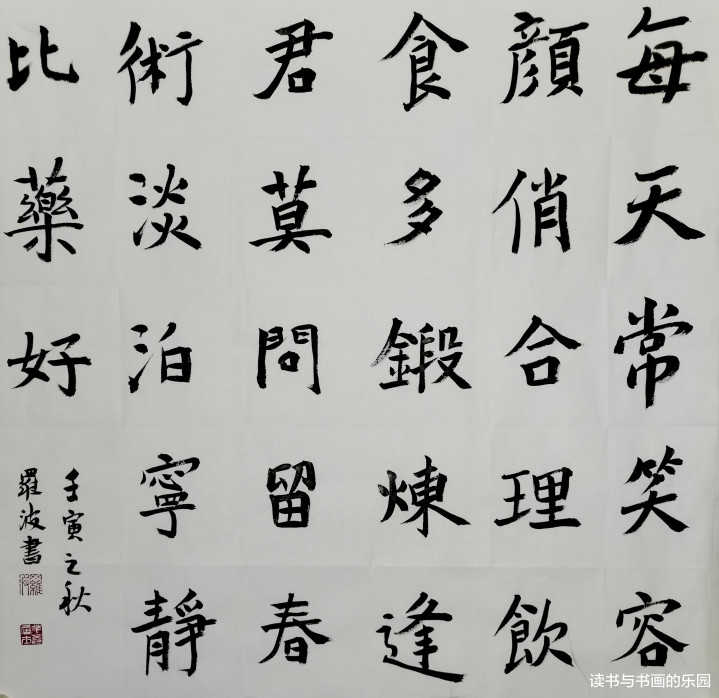 每天常笑容
顔俏合理飲
食多鍛煉逢
君莫問留春
術淡泊寧靜
比藥好
壬寅之秋
羅波書
读书与书画的乐园